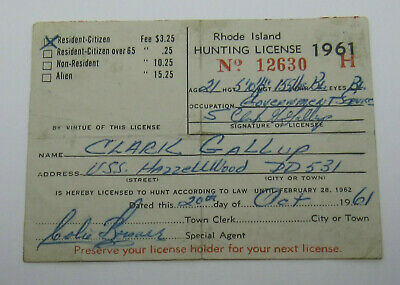 Resident-Citizen Fee $3.25
Resident-Citizen over 65 " .25
Non-Resident " 10.25
Alien " 15.25
Rhode Island
HUNTING LICENSE 1961
No 12630 H
AGE 21 HGT WGT EYES
OCCUPATION Government Service
SIGNATURE OF LICENSEE
BY VIRTUE OF THIS LICENSE
NAME CLARK GALLUP
ADDRESS USS. Hazzellwood DD 531
(STREET) (CITY OR TOWN)
IS HEREBY LICENSED TO HUNT ACCORDING TO LAW UNTIL FEBRUARY 28, 1962
Dated this 20th day of Oct 1961
Town Clerk City or Town
Special Agent
Preserve your license holder for your next license.